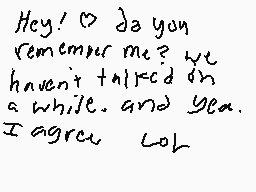 Hey! ♡ do you
remember me? we
haven't talked in
a while. and yea.
I agree LoL